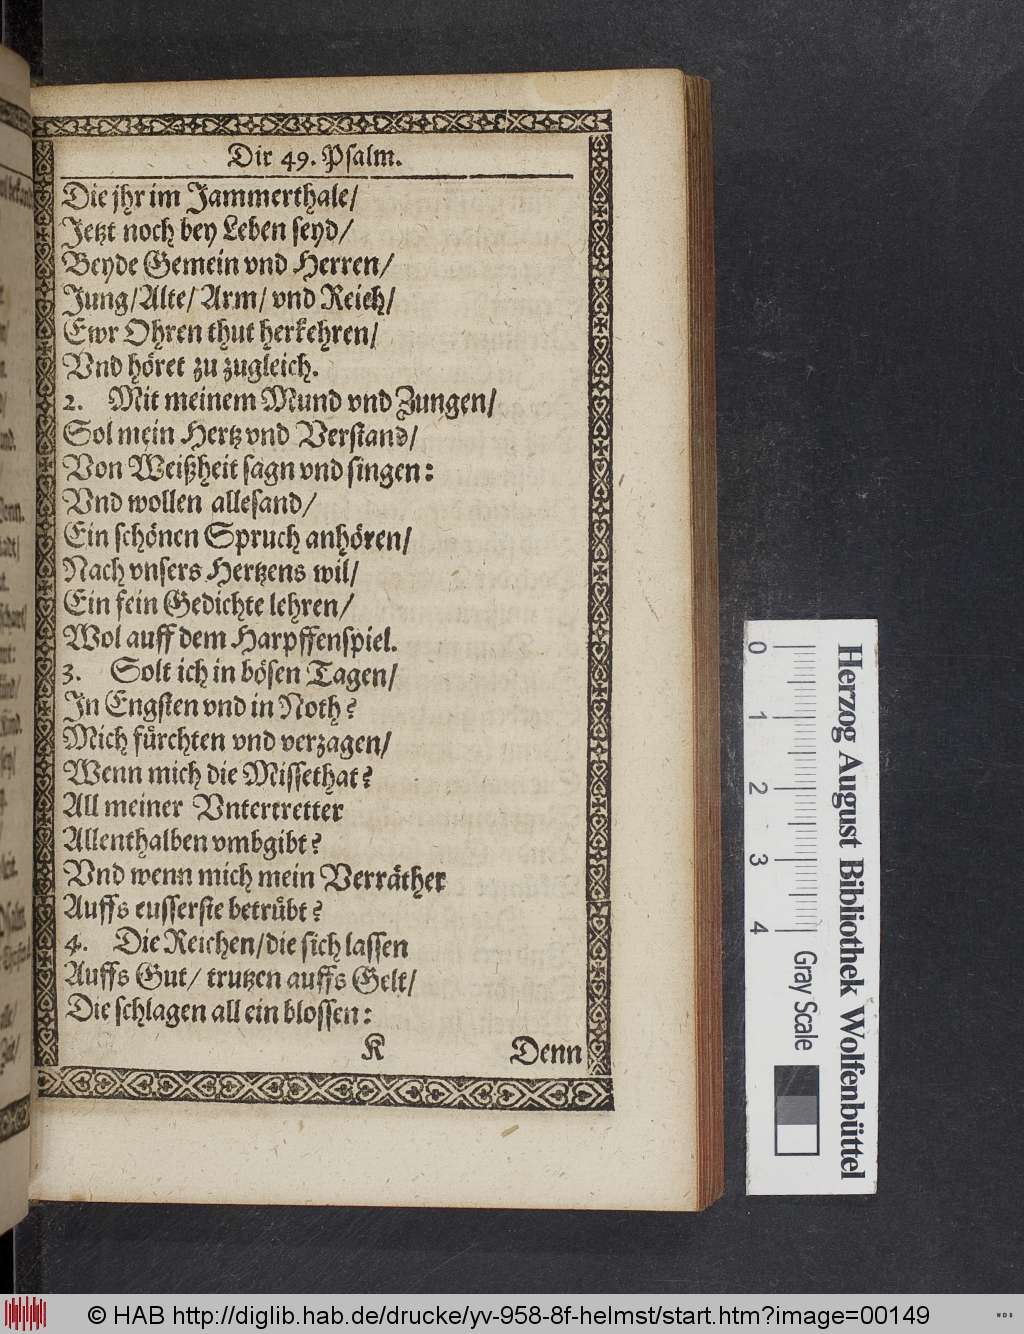 Dir 49. Psalm.
Die jhr im Jammerthale/
Jetzt noch bey Leben seyd/
Beyde Gemein vnd Herren/
Jung/ Alte/ Arm/ vnd Reich/
Ewr Ohren thut herkehren/
Vnd höret zu zugleich.
2. Mit meinem Mund vnd Zungen/
Sol mein Hertz vnd Verstand/
Von Weißheit sagn vnd singen:
Vnd wollen allesand/
Ein schönen Spruch anhören/
Nach vnsers Hertzens wil/
Ein fein Gedichte lehren/
Wol auff dem Harpffenspiel.
3. Solt ich in bösen Tagen/
In Engsten vnd in Noth?
Mich fürchten vnd verzagen/
Wenn mich die Missethat?
All meiner Vntertretter
Allenthalben vmbgibt?
Vnd wenn mich mein Verräther
Auffs eusserste betrübt?
4. Die Reichen/ die sich lassen
Auffs Gut/ trutzen auffs Gelt/
Die schlagen all ein blossen:
K Denn
0 1 2 3 4 Gray Scale
Herzog August Bibliothek Wolfenbüttel
© HAB http://diglib.hab.de/drucke/yv-958-8f-helmst/start.htm?image=00149